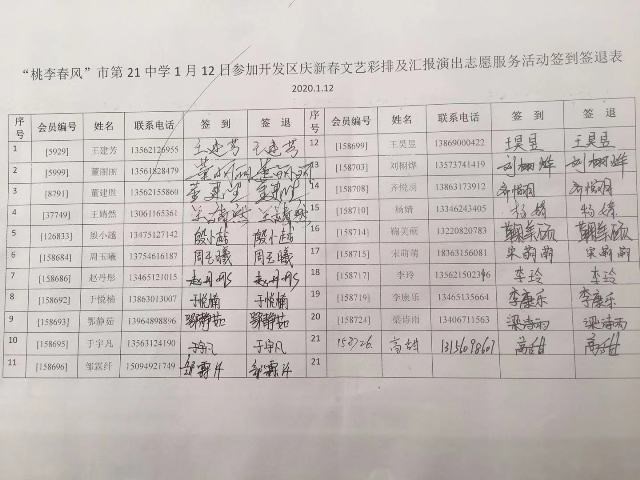 “桃李春风”市第21中学1月12日参加开发区庆新春文艺彩排及汇报演出志愿服务活动签到签退表
2020.1.12
序号 会员编号 姓名 联系电话 签 到 签 退 序号 会员编号 姓名 联系电话 签 到 签 退
1 [5929] 王建芳 13562126955 王建芳 王建芳 12 [158699] 王昊昱 13869000422 王昊昱 王昊昱
2 [5999] 董丽丽 13561828479 董丽丽 董丽丽 13 [158703] 刘栩烨 13573741419 刘栩烨 刘栩烨
3 [8791] 董建胜 13562155860 14 [158708] 齐悦玥 13863173912 齐悦玥 齐悦玥
4 [37749] 王婧然 13061165361 15 [158710] 杨婧 13346243405 杨婧 杨婧
5 [126833] 殷小越 13475127142 殷小越 殷小越 16 [158714] 鞠美硕 13220820783 鞠美硕 鞠美硕
6 [158684] 周玉曦 13754616187 周玉曦 周玉曦 17 [158715] 宋萌萌 18363156081 宋萌萌 宋萌萌
7 [158686] 赵丹彤 13465121015 赵丹彤 赵丹彤 18 [158717] 李玲 李玲 李玲
8 [158692] 于悦楠 13863013007 于悦楠 于悦楠 19 [158719] 李康乐 13465135664 李康乐 李康乐
9 [158693] 鄂静茹 13964898896 鄂静茹 鄂静茹 20 [158724] 梁诗雨 13406711563 梁诗雨 梁诗雨
10 [158695] 于宇凡 13563124190 于宇凡 于宇凡 21 158726 高甜 13156098607 高甜 高甜
11 [158696] 邹霖纤 15094921749 邹霖纤 邹霖纤 21